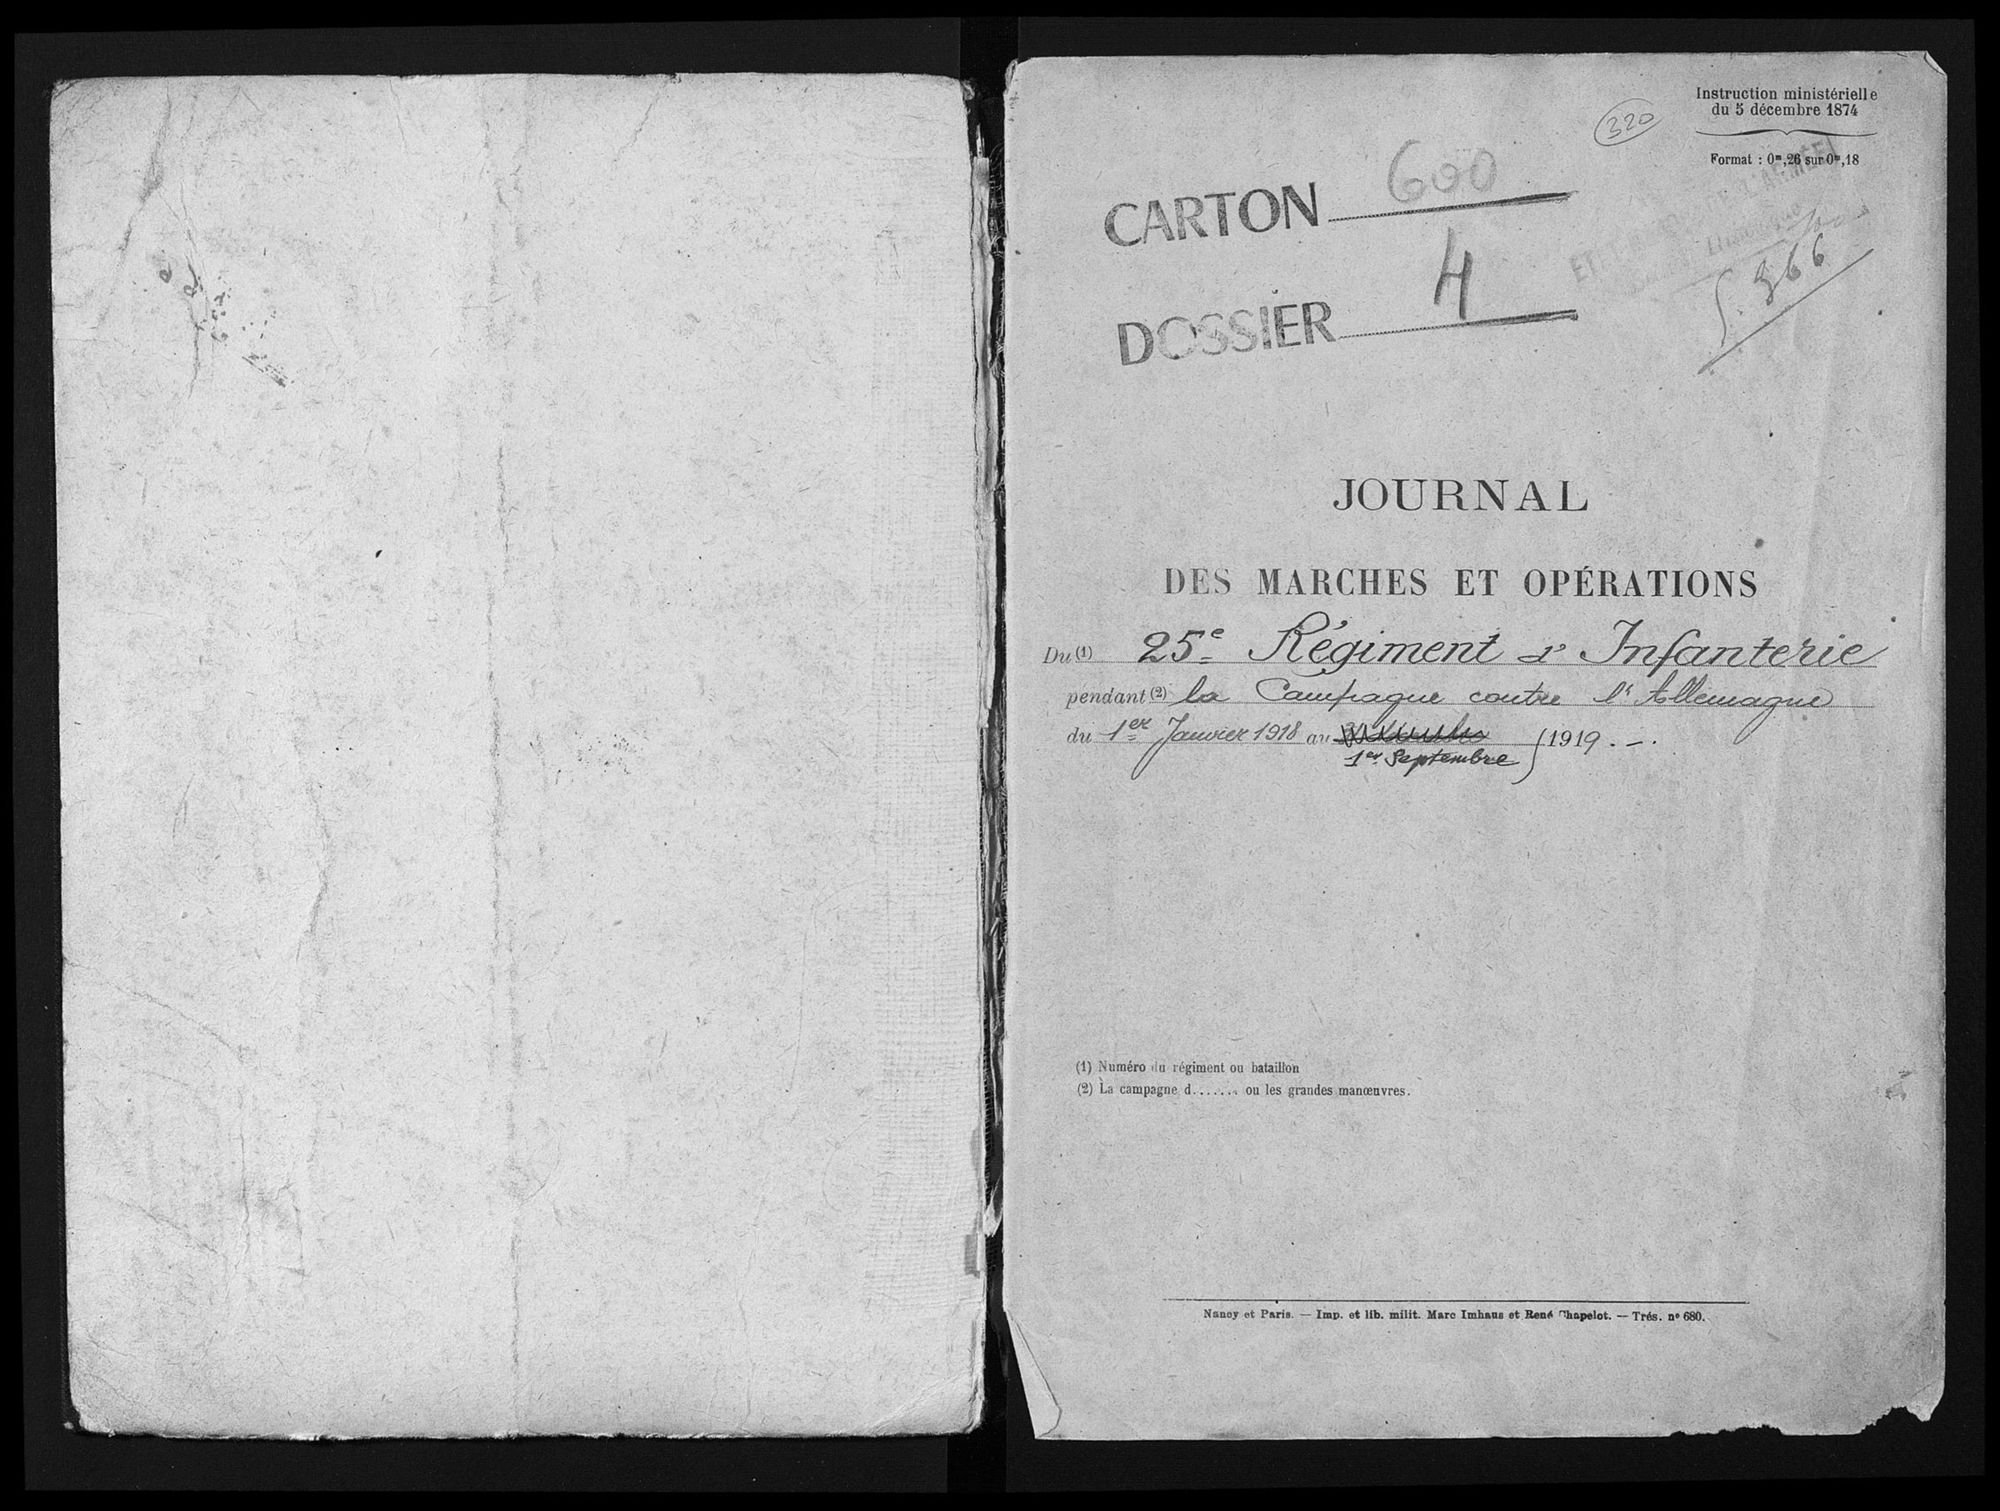 Instruction ministérielle
du 5 décembre 1874
320
Format : 0ᵐ,26 sur 0ᵐ,18
CARTON 600
DOSSIER 4
L'ARMÉE
366
JOURNAL
DES MARCHES ET OPÉRATIONS
Du (1) 25e Régiment d'Infanterie
pendant (2) la Campagne contre l'Allemagne
du 1er Janvier 1918 au 1er Septembre 1919.
(1) Numéro du régiment ou bataillon
(2) La campagne d....... ou les grandes manœuvres.
Nancy et Paris. — Imp. et lib. milit. Marc Imhaus et René Chapelot. — Trés. nº 680.